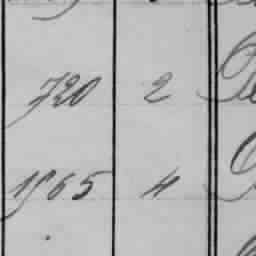 720 2
1565 4